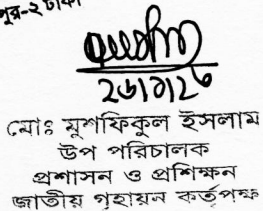 পুর-২ ঢাকা
২৬।১।২৬
মোঃ মুশফিকুল ইসলাম
উপ পরিচালক
প্রশাসন ও প্রশিক্ষন
জাতীয় গৃহায়ন কর্তৃপক্ষ